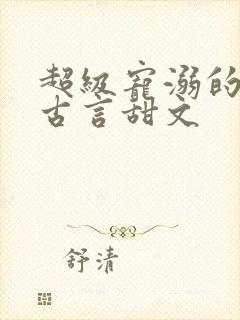 超级宠溺的
古言甜文
舒清